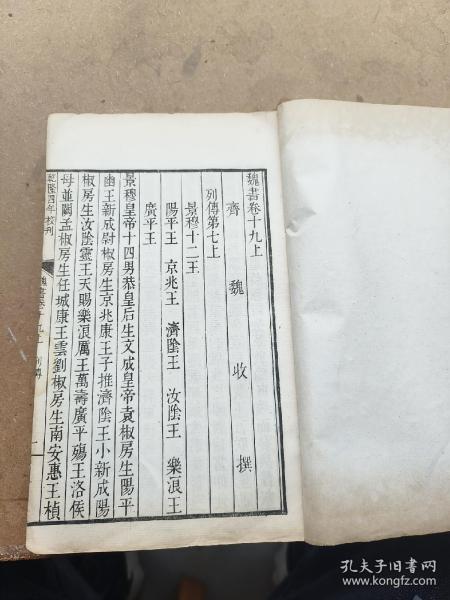 魏書卷十九上
齊魏收撰
列傳第七上
景穆十二王
陽平王 京兆王 濟陰王 汝陰王 樂浪王
廣平王
景穆皇帝十四男恭皇后生文成皇帝袁椒房生陽平
幽王新成尉椒房生京兆康王子推濟陰王小新成陽
椒房生汝陰靈王天賜樂浪厲王萬壽廣平殤王洛侯
母並闕孟椒房生任城康王雲劉椒房生南安惠王楨
乾隆四年校刊
魏書卷十九上 列傳
一
孔夫子旧书网
www.kongfz.com